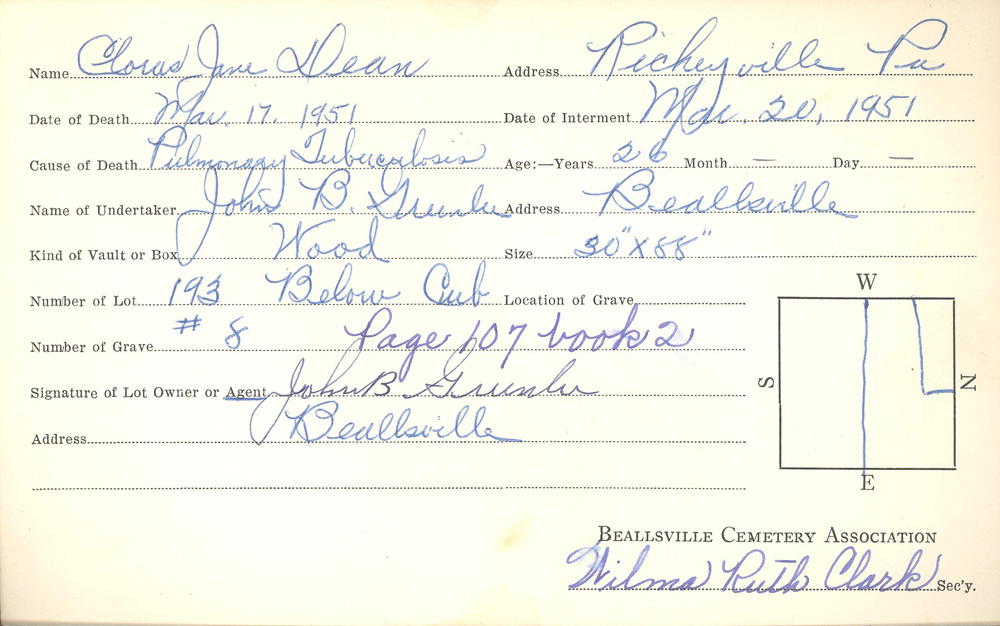 Name Cloras Jane Dean Address Richeyville Pa
Date of Death Mar. 17. 1951 Date of Interment Mar. 20, 1951
Cause of Death Pulmonary Tuberculosis Age:—Years 26 Month — Day —
Name of Undertaker John B. Greenlee Address Beallsville
Kind of Vault or Box Wood Size 30"X88"
Number of Lot 193 Below Cub Location of Grave
Number of Grave # 8 Page 107 book 2
Signature of Lot Owner or Agent John B Greenlee
Address Beallsville
W
S
N
E
BEALLSVILLE CEMETERY ASSOCIATION
Wilma Ruth Clark Sec'y.